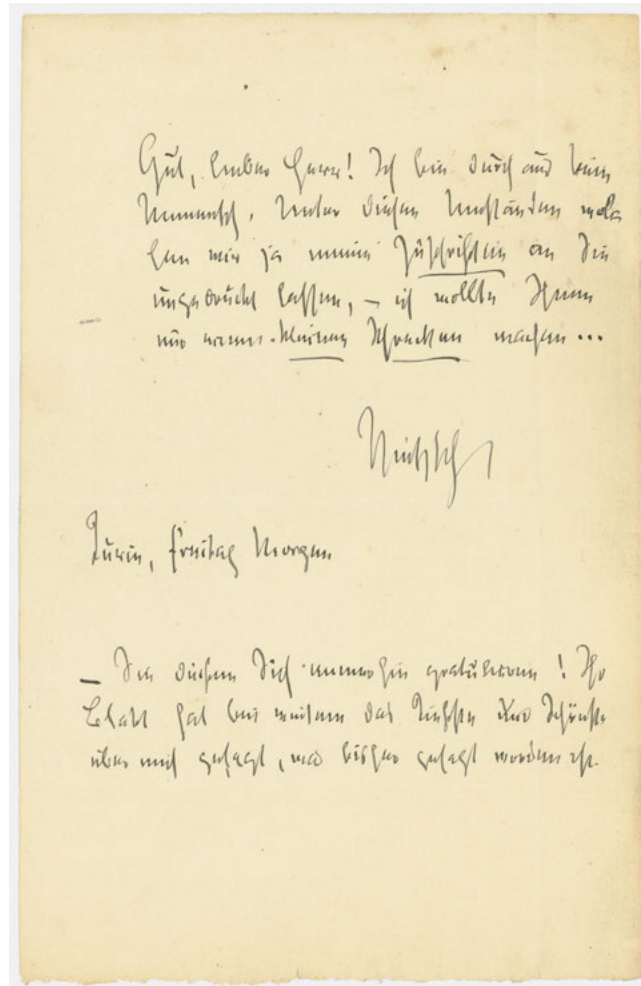 Gut, lieber Herr! Ich bin durchaus kein
Unmensch. Unter diesen Umständen wol-
len wir ja meine Zuschriften an Sie
ungedruckt lassen, – ich wollte Ihnen
nur einen kleinen Schrecken machen...
Nietzsche
Turin, Freitag Morgen
– Sie dürfen Sich immerhin gratuliren! Ihr
Blatt hat bei weitem das Tiefste und Schönste
über mich gesagt, was bisher gesagt worden ist.